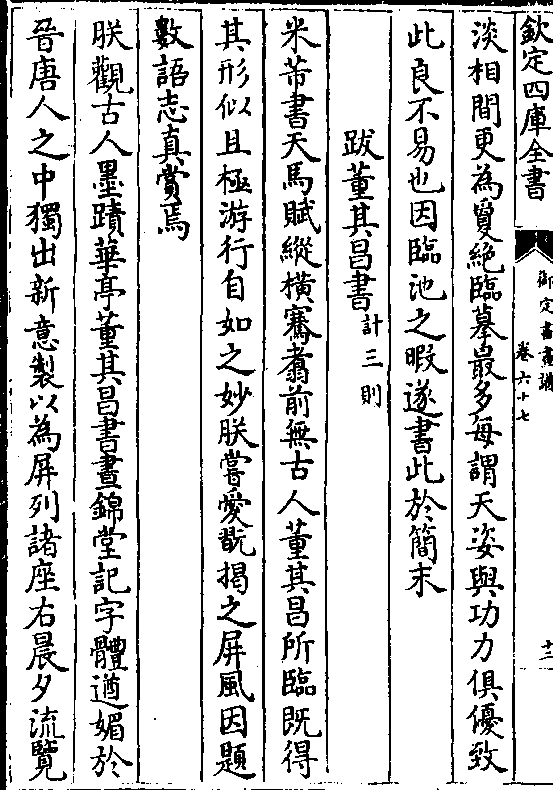 欽定四庫全書
御定書畫譜
卷六十七
十二
淡相間更為夐絶臨摹最多每謂天姿與功力俱優致
此良不易也因臨池之暇遂書此於簡末
跋董其昌書計三則
米芾書天馬賦縱橫騫翥前無古人董其昌所臨既得
其形似且極游行自如之妙朕嘗愛翫揭之屏風因題
數語志真賞焉
朕觀古人墨蹟華亭董其昌書晝錦堂記字體遒媚於
晉唐人之中獨出新意製以為屏列諸座右晨夕流覽